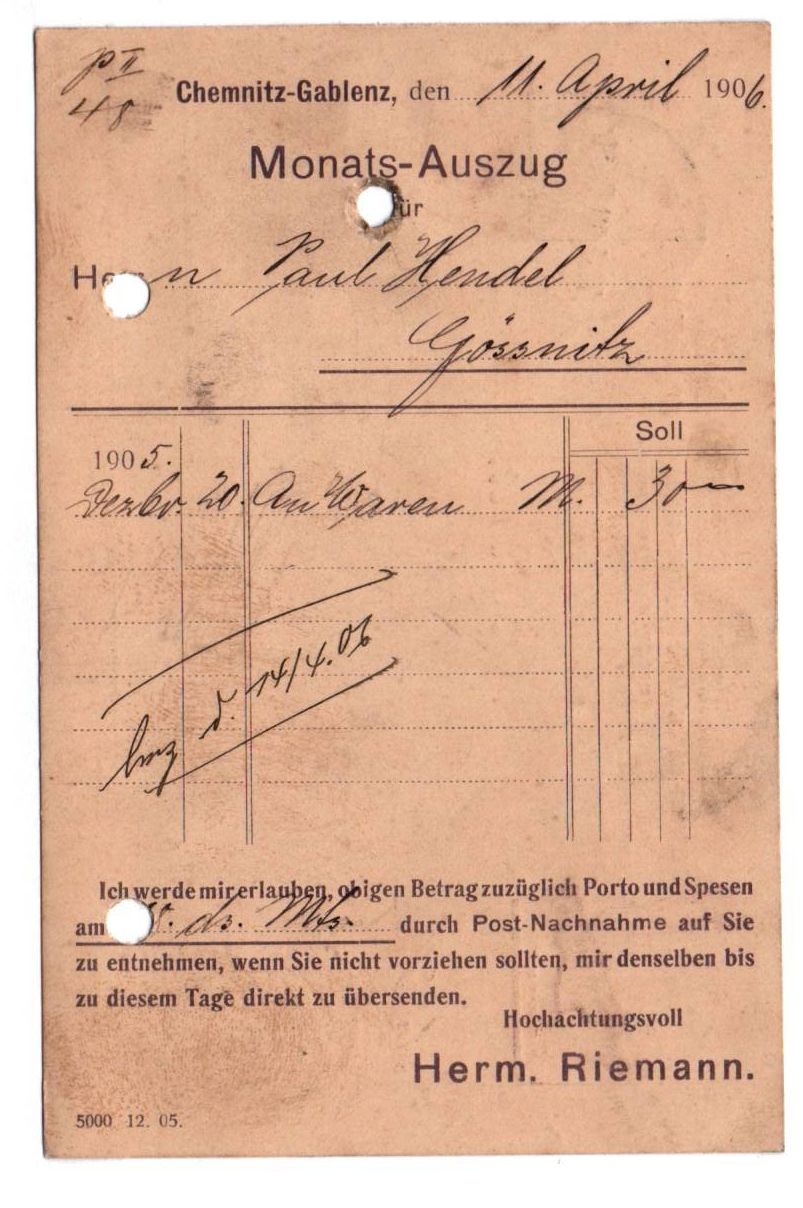 P II
48
Chemnitz-Gablenz, den 11. April 1906.
Monats-Auszug
für
Herrn Paul Hendel
Gössnitz
Soll
1905.
Dezbr. 20. An Waren M. 30 —
bez d. 14/4. 06
Ich werde mir erlauben, obigen Betrag zuzüglich Porto und Spesen
am ds. Mts. durch Post-Nachnahme auf Sie
zu entnehmen, wenn Sie nicht vorziehen sollten, mir denselben bis
zu diesem Tage direkt zu übersenden.
Hochachtungsvoll
Herm. Riemann.
5000 12. 05.